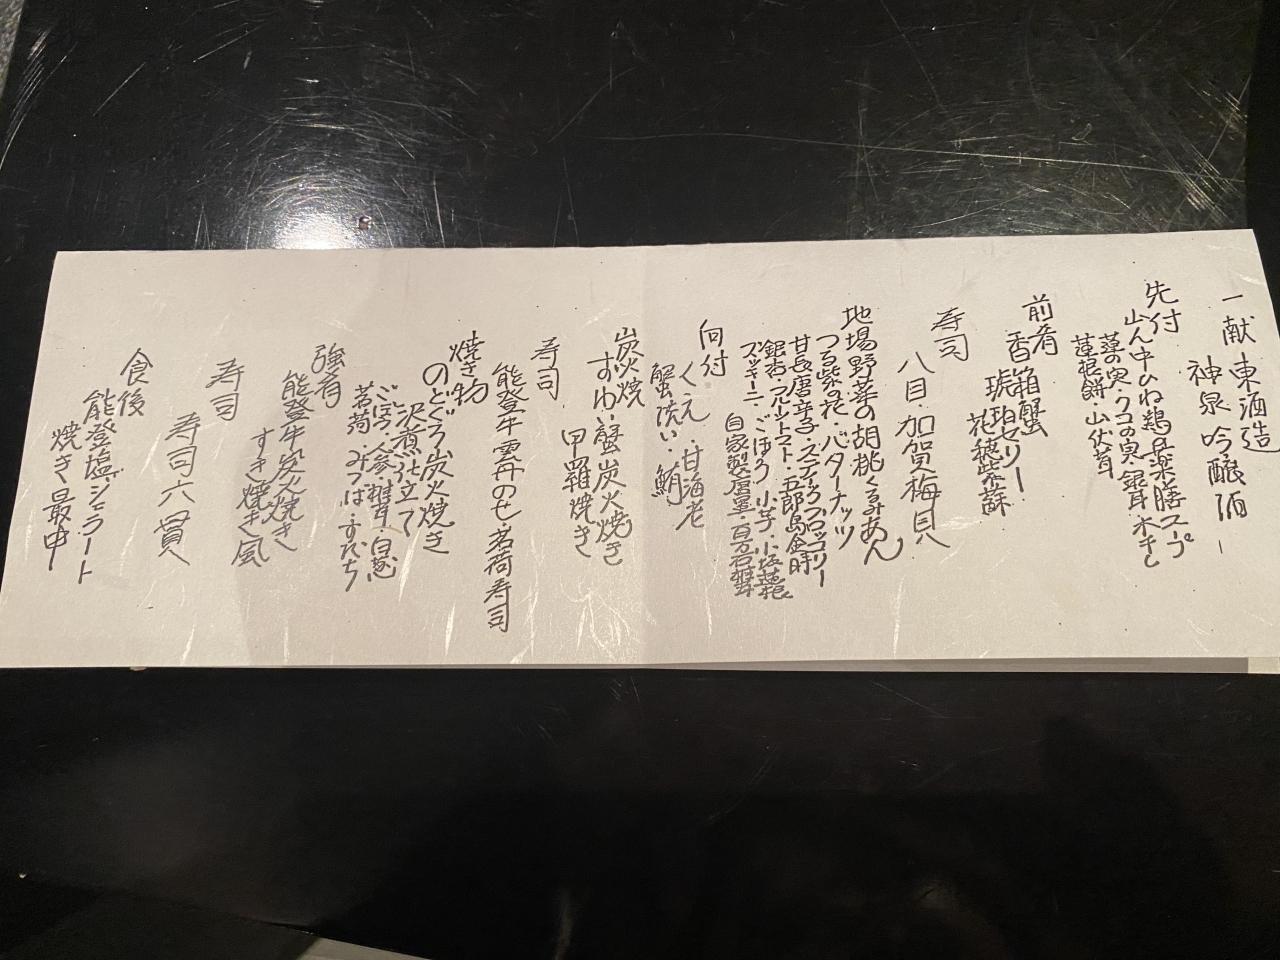 一献 東酒造
神泉 吟醸酒
先付
山ん中ひね鶏 薬膳スープ
蓮の実・クコの実・銀耳・木干し
蓮根餅・山伏茸
前肴
香箱蟹
琥珀ゼリー
花穂紫蘇
寿司
八目・加賀梅貝
地場野菜の胡桃くるみあん
つる紫の花・バターナッツ
甘長唐辛子・スティックブロッコリー
銀杏・フルーツトマト・五郎島金時
ズッキーニ・ごぼう・小芋・小坂蓮根
自家製唐墨・百万石椎茸
向付
くえ・甘海老
蟹洗い・鮪
炭火焼
ずわい蟹炭火焼き
甲羅焼き
寿司
能登牛雲丹のせ・茗荷寿司
焼き物
のどぐろ炭火焼き
沢煮仕立て
ごぼう・人参・椎茸・白葱
茗荷・みつば・すだち
強肴
能登牛炭火焼き
すき焼き風
寿司
寿司六貫
食後
能登塩ジェラート
焼き最中